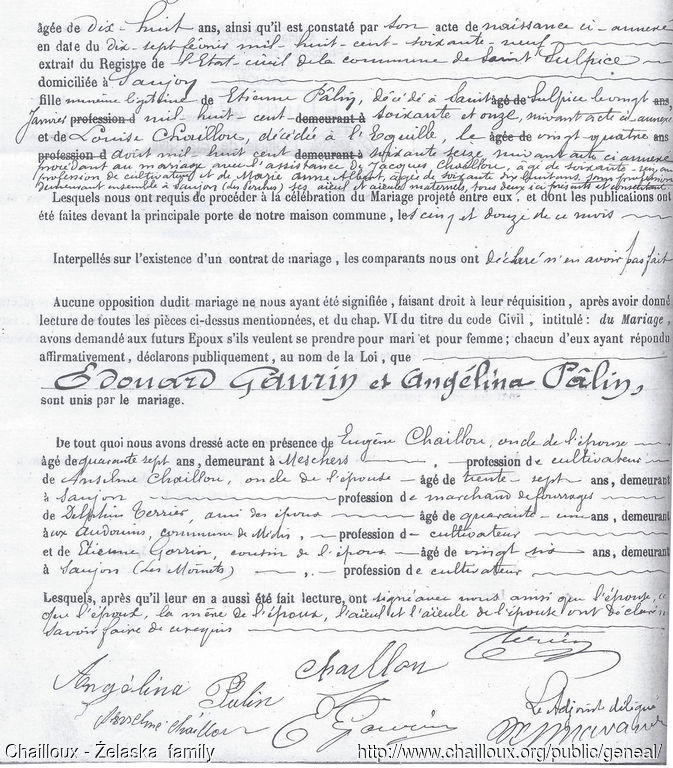 âgée de dix-huit ans, ainsi qu'il est constaté par son acte de naissance ci-annexé
en date du dix-sept février mil-huit-cent-soixante-neuf
extrait du Registre de l'État-civil de la commune de Saint Sulpice
domiciliée à Saujon
fille mineure légitime de Etienne Pâlin, décédé à Saint âgé de Sulpice le vingt ans,
Janvier profession d mil-huit-cent- demeurant à soixante et onze, suivant acte ci-annexé
et de Louise Chaillou, décédée à l'Eguille, le âgée de vingt-quatre ans
profession d août mil huit cent demeurant à soixante seize, suivant acte ci annexé
procédant au mariage avec l'assistance de Jacques Chaillou, âgé de soixante
profession de cultivateur et de Marie Anne Albert, âgée de soixante dix huit ans, sans profession
demeurant ensemble à Saujon ses aïeul et aïeule maternels, tous deux ici présents et consentant
Lesquels nous ont requis de procéder à la célébration du Mariage projeté entre eux : et dont les publications ont
été faites devant la principale porte de notre maison commune, les cinq et douze de ce mois
Interpellés sur l'existence d'un contrat de mariage, les comparants nous ont déclaré n'en avoir pas fait
Aucune opposition dudit mariage ne nous ayant été signifiée, faisant droit à leur réquisition, après avoir donné
lecture de toutes les pièces ci-dessus mentionnées, et du chap. VI du titre du code Civil, intitulé : du Mariage,
avons demandé aux futurs Epoux s'ils veulent se prendre pour mari et pour femme ; chacun d'eux ayant répondu
affirmativement, déclarons publiquement, au nom de la Loi, que
Edouard Gaurin et Angélina Pâlin,
sont unis par le mariage.
De tout quoi nous avons dressé acte en présence de Eugène Chaillou, oncle de l'épouse
âgé de quarante sept ans, demeurant à Meschers, profession de cultivateur
de Anselme Chaillou, oncle de l'épouse âgé de trente-sept ans, demeurant
à Saujon profession de marchand de fourrages
de Delphin Terrier, ami des époux âgé de quarante-un ans, demeurant
aux Audouins, commune de Médis, profession d cultivateur
et de Etienne Gorrin, cousin de l'époux âgé de vingt six ans, demeurant
à Saujon profession de cultivateur
Lesquels, après qu'il leur en a aussi été fait lecture, ont signé avec nous ainsi que l'épouse, ce
que l'époux, la mère de l'époux, l'aïeul et l'aïeule de l'épouse ont déclaré ne
savoir faire de ce requis
Terrier
Chaillou
Angélina Palin
Anselme Chaillou
E Gaurin
Le Adjoint délégué
Chailloux - Żelaska family
http://www.chailloux.org/public/geneal/